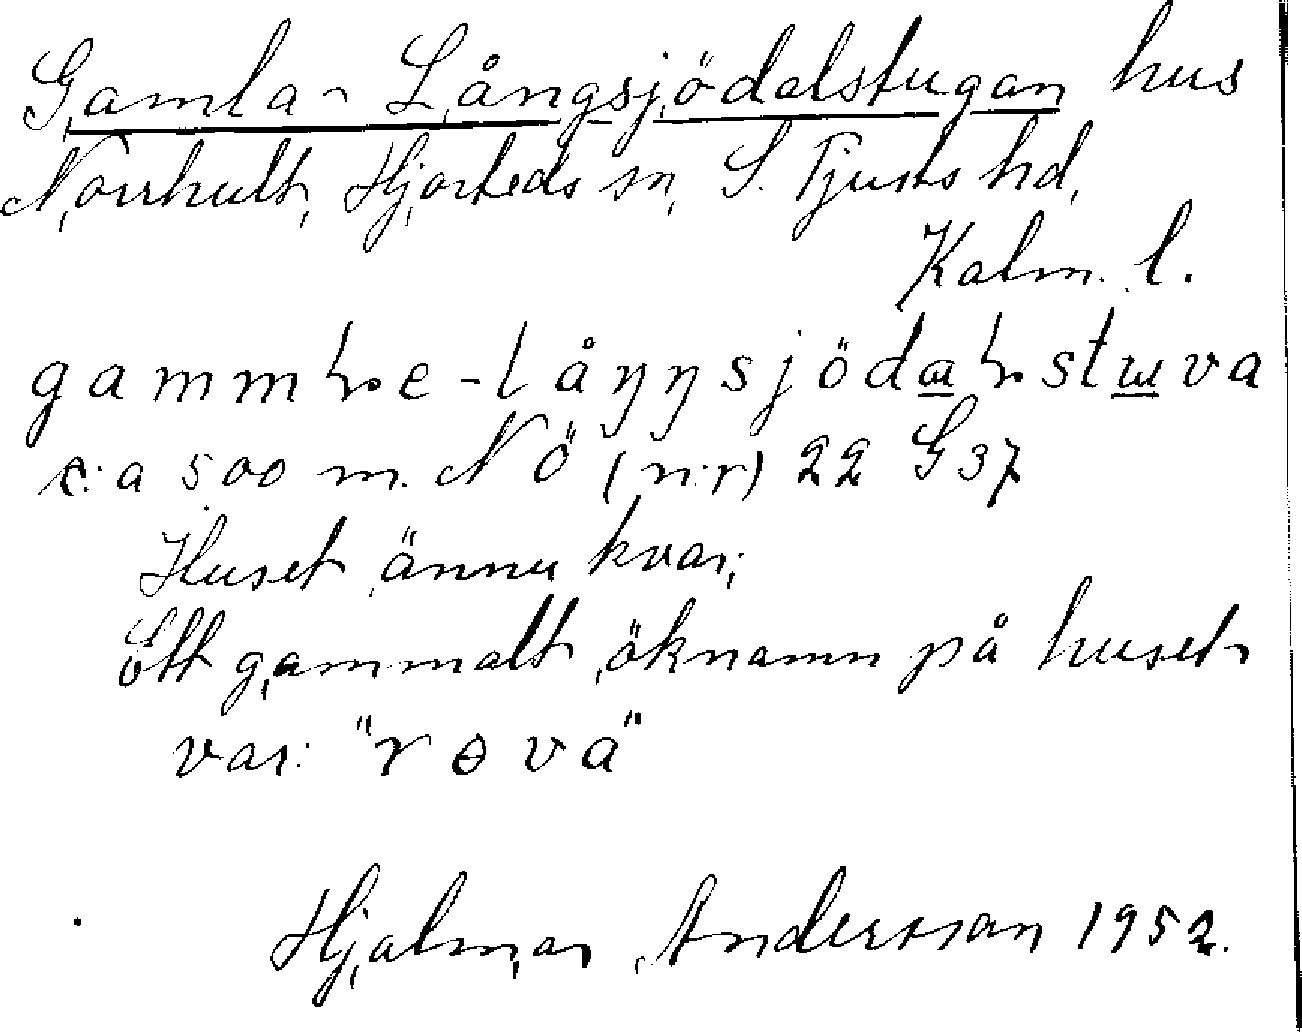 Gamla-Långsjödalstugan hus
Norrhult, Hjorteds sn, S. Tjusts hd,
Kalm. l.
gammɫe-låŋŋsjödaɫstuva
c:a 500 m. NÖ (n:r) 22 G 37
Huset ännu kvar;
Ett gammalt öknamn på huset
var: "rɵva"
Hjalmar Andersson 1952.